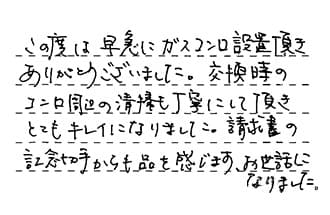 この度は早急にガスコンロ設置頂き
ありがとうございました。交換時の
コンロ周辺の清掃も丁寧にして頂き
とてもキレイになりました。請求書の
記念切手からも品を感じます。お世話に
なりました。